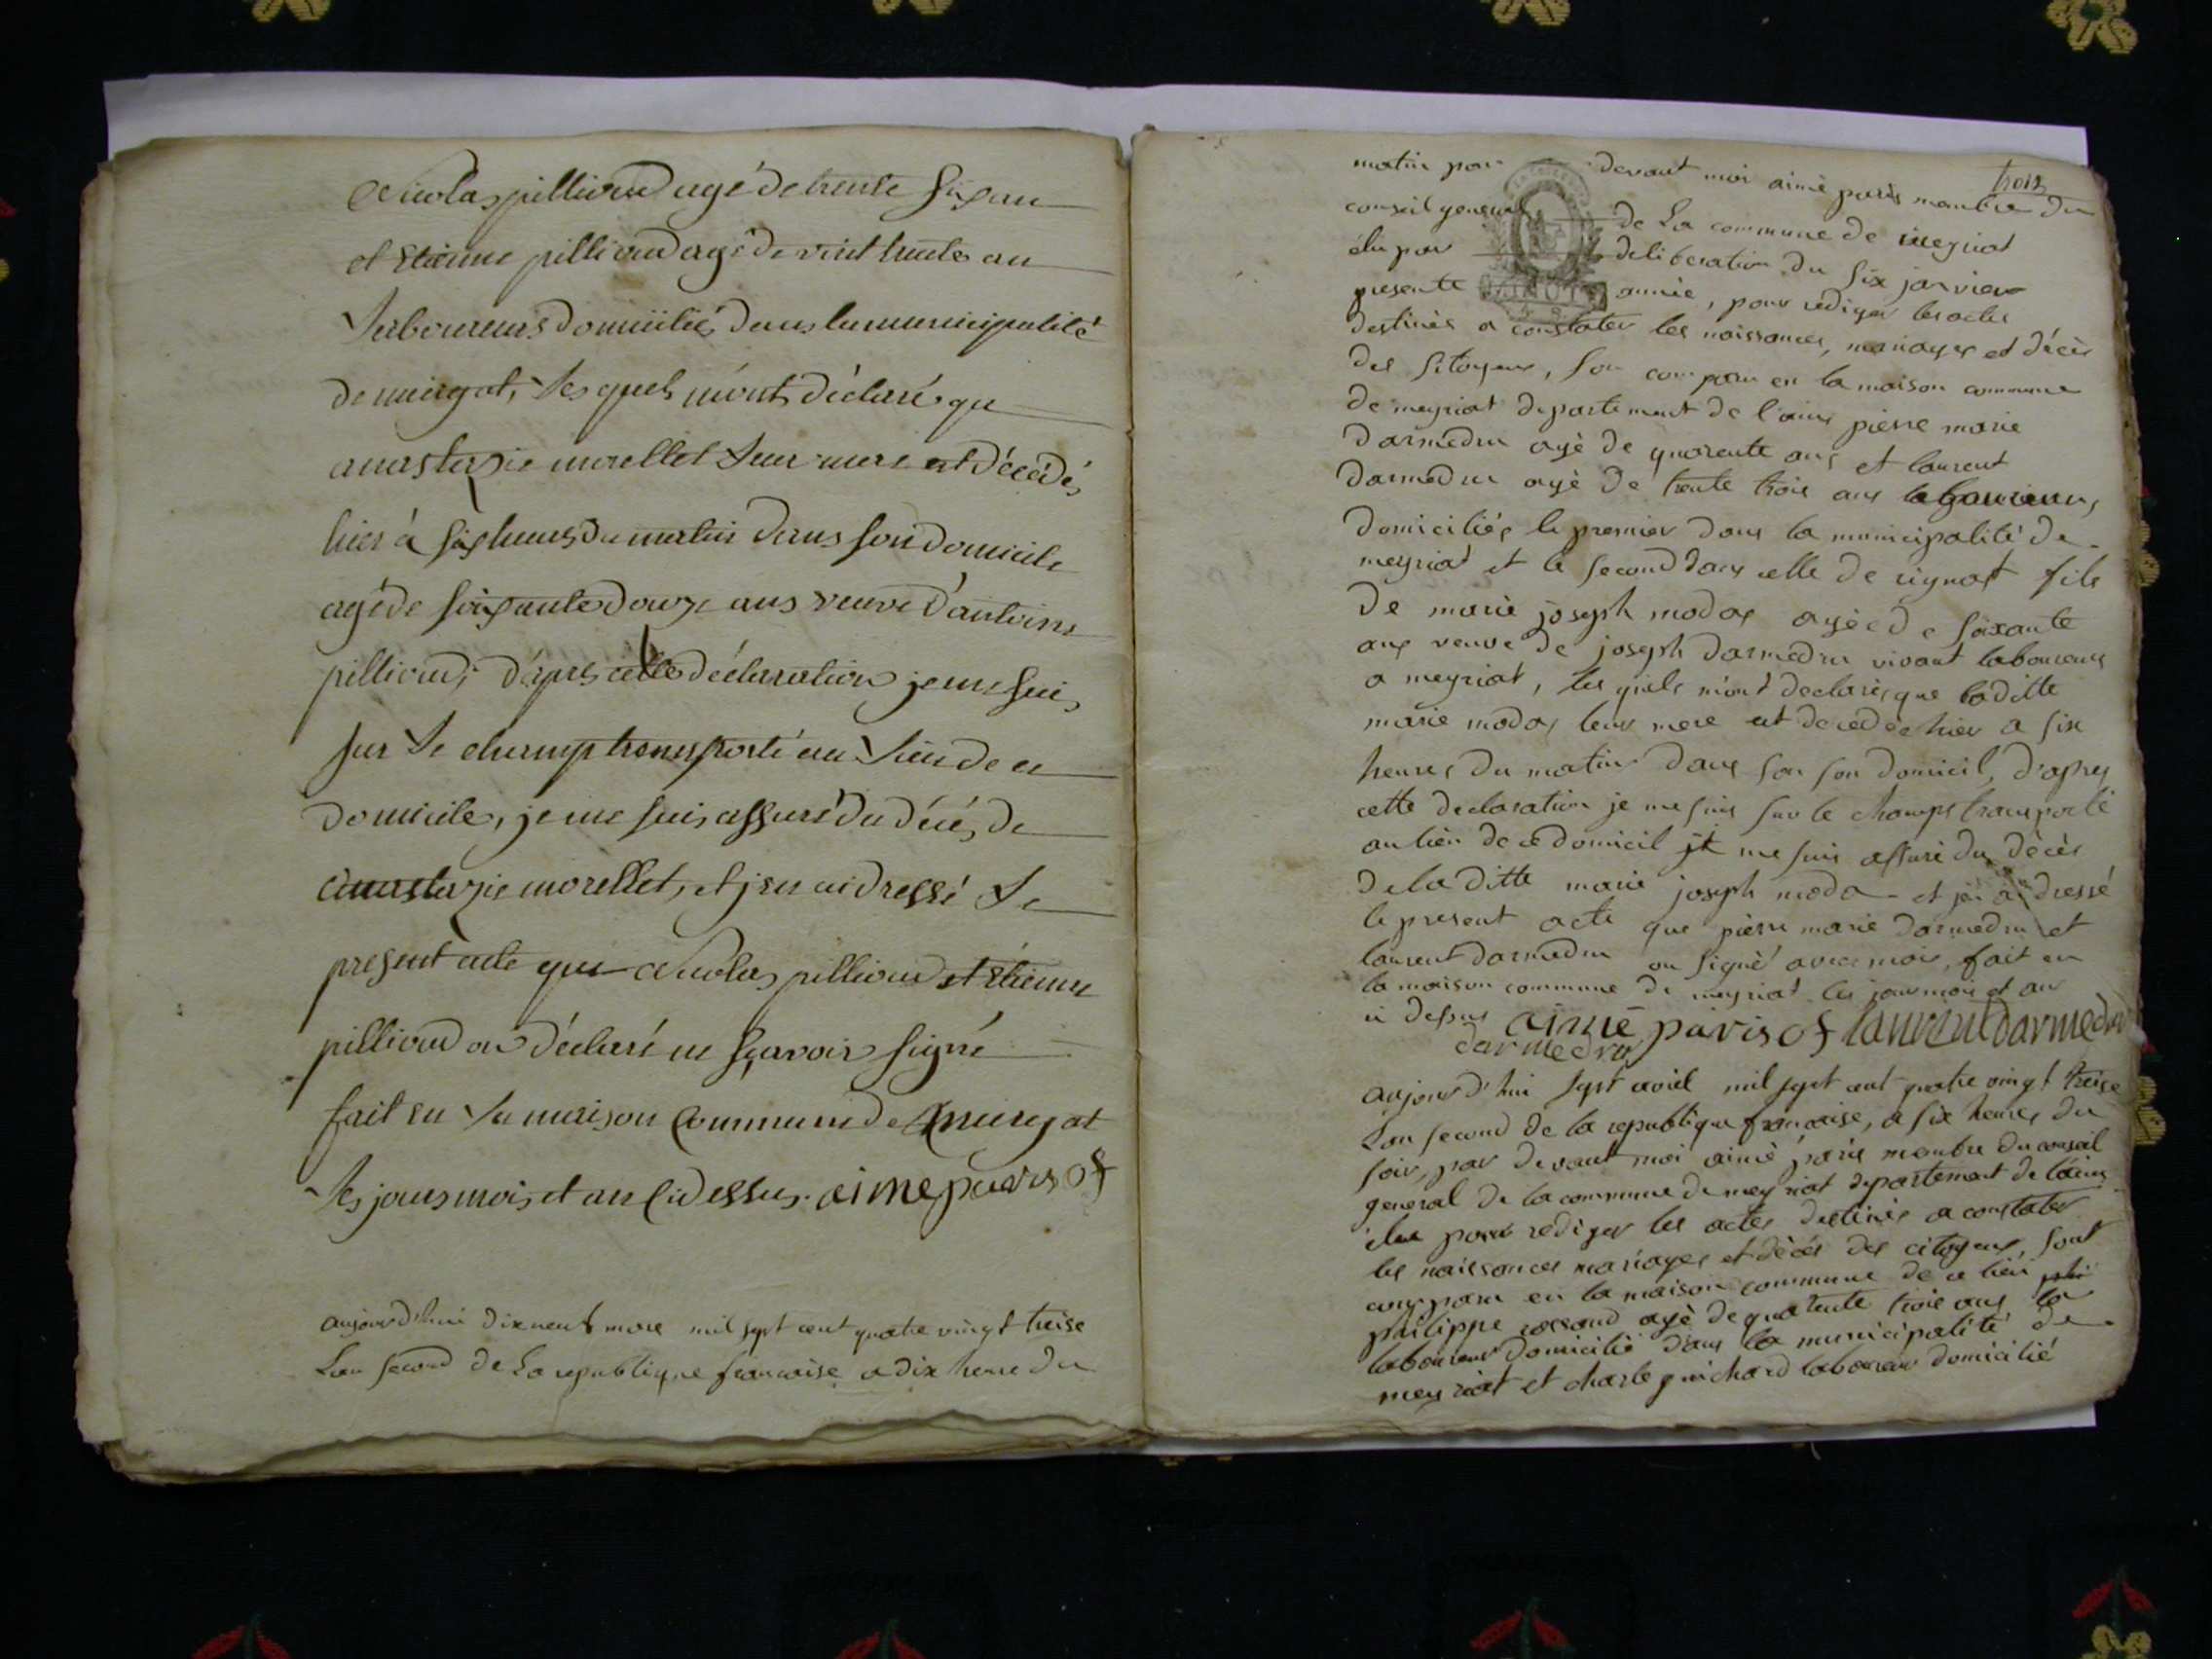 Nicolas pilliond agé de trente six an
et Etienne pilliond agé de vint huite an
Laboureurs domiiliés dans la municipalité
de mirgat, Les quels m'ont déclaré que
anastazie morellet Leur mere est décédés
hier à six heures du matin dans son domicile
agé de soixante douze ans veuve d'antoine
pilliond, d'apres cette déclaration je me suis
sur Le champ transporté au Lieu de ce
domicile, je me suis assuré du décés de
anastazie morellet, et j'en ai dressé Le
present acte que Nicolas pilliond et Etienne
pilliond on déclaré ne sçavoir signé
fait en La maison Commune de mirgat
Les jours mois et an Cidessus. aime paris of
aujourd'hui dixneuf mars mil sept cent quatre vingt treise
Lan second de La republique francaise a dix heure du
trois
matin par devant moi aimé paris membre du
conseil general de La commune de meyriat
élu par deliberation du six janvier
presente année, pour rediger les actes
destinés a constater les naissances, mariages et décès
des sitoyens, son comparu en la maison commune
de meyriat departement de l'ains pierre marie
darmedru agé de quarente ans et laurent
darmedru agé de trente trois ans laboureurs
domiciliés le premier dans la municipalité de
meyriat et le second dans celle de rignat fils
de marie joseph modas agée de soixante
ans veuve de joseph darmedru vivant laboureur
a meyriat, les quels m'ont declarés que laditte
marie modas leur mere est decedée hier a six
heures du matin dans son son domicil, d'apres
cette declaration je me suis sur le champs transporté
au lieu de ce domicil je me suis assuré du décès
de la ditte marie joseph moda et jai dressé
le present acte que pierre marie darmedru et
laurent darmedru on signé avec moi, fait en
la maison commune de meyriat les jour mois et an
ci dessus aimé paris of laurent darmedru
darmedru
aujourd'hui sept avril mil sept cent quatre vingt treise
Lan second de la republique francaise, a six heures du
soir, par devant moi aimé paris membre du conseil
general de la commune de meyriat departement de l'ains
élu pour rediger les actes destinés a constater
les naissances mariages et décés des citoyens, sont
comparu en la maison commune de ce lieu
philippe agé de quarente trois ans
laboureur domicilié dans la municipalité de
meyriat et charle guichard laboureur domicilié